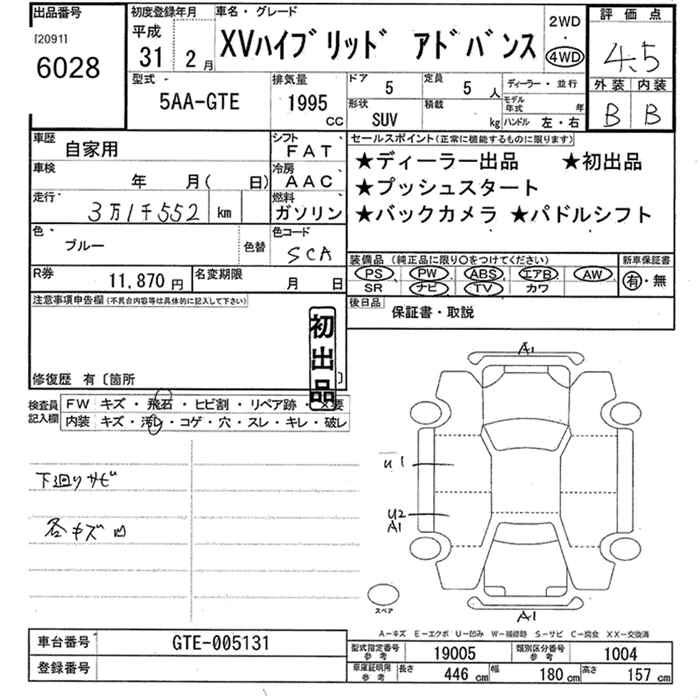 出品番号
[2091]
6028
初度登録年月
平成
31 2 月
車名・グレード
XVハイブリッド アドバンス
2WD
・
4WD
評価点
4.5
外装 内装
B B
型式
5AA-GTE
排気量
1995
CC
ドア 5
定員 5 人
形状 SUV
積載 kg
ディーラー・並行
モデル年式 年
ハンドル 左・右
車歴
自家用
シフト
FAT
車検
年 月( 日)
冷房
AAC
走行
3万1千552 km
燃料
ガソリン
色
ブルー
色替
色コード
SCA
R券
11,870 円
名変期限
月 日
セールスポイント(正常に機能するものに限ります)
★ディーラー出品 ★初出品
★プッシュスタート
★バックカメラ ★パドルシフト
装備品 (純正品に限り○をつけてください)
PS PW ABS エアB AW
SR ナビ TV カワ
新車保証書
有・無
後日品
保証書・取説
注意事項申告欄(不具合内容等は具体的に記入して下さい)
初出品
修復歴 有〔箇所 〕
検査員
記入欄
FW キズ・飛石・ヒビ割・リペア跡・×要
内装 キズ・汚レ・コゲ・穴・スレ・キレ・破レ
下廻りサビ
各キズ凹
A1
U1
U2
A1
A1
スペア
A-キズ E-エクボ U-凹み W-補修跡 S-サビ C-腐食 XX-交換済
車台番号
GTE-005131
登録番号
型式指定番号
参考
19005
類別区分番号
参考
1004
車庫証明用
参考
長さ 446 cm
幅 180 cm
高さ 157 cm